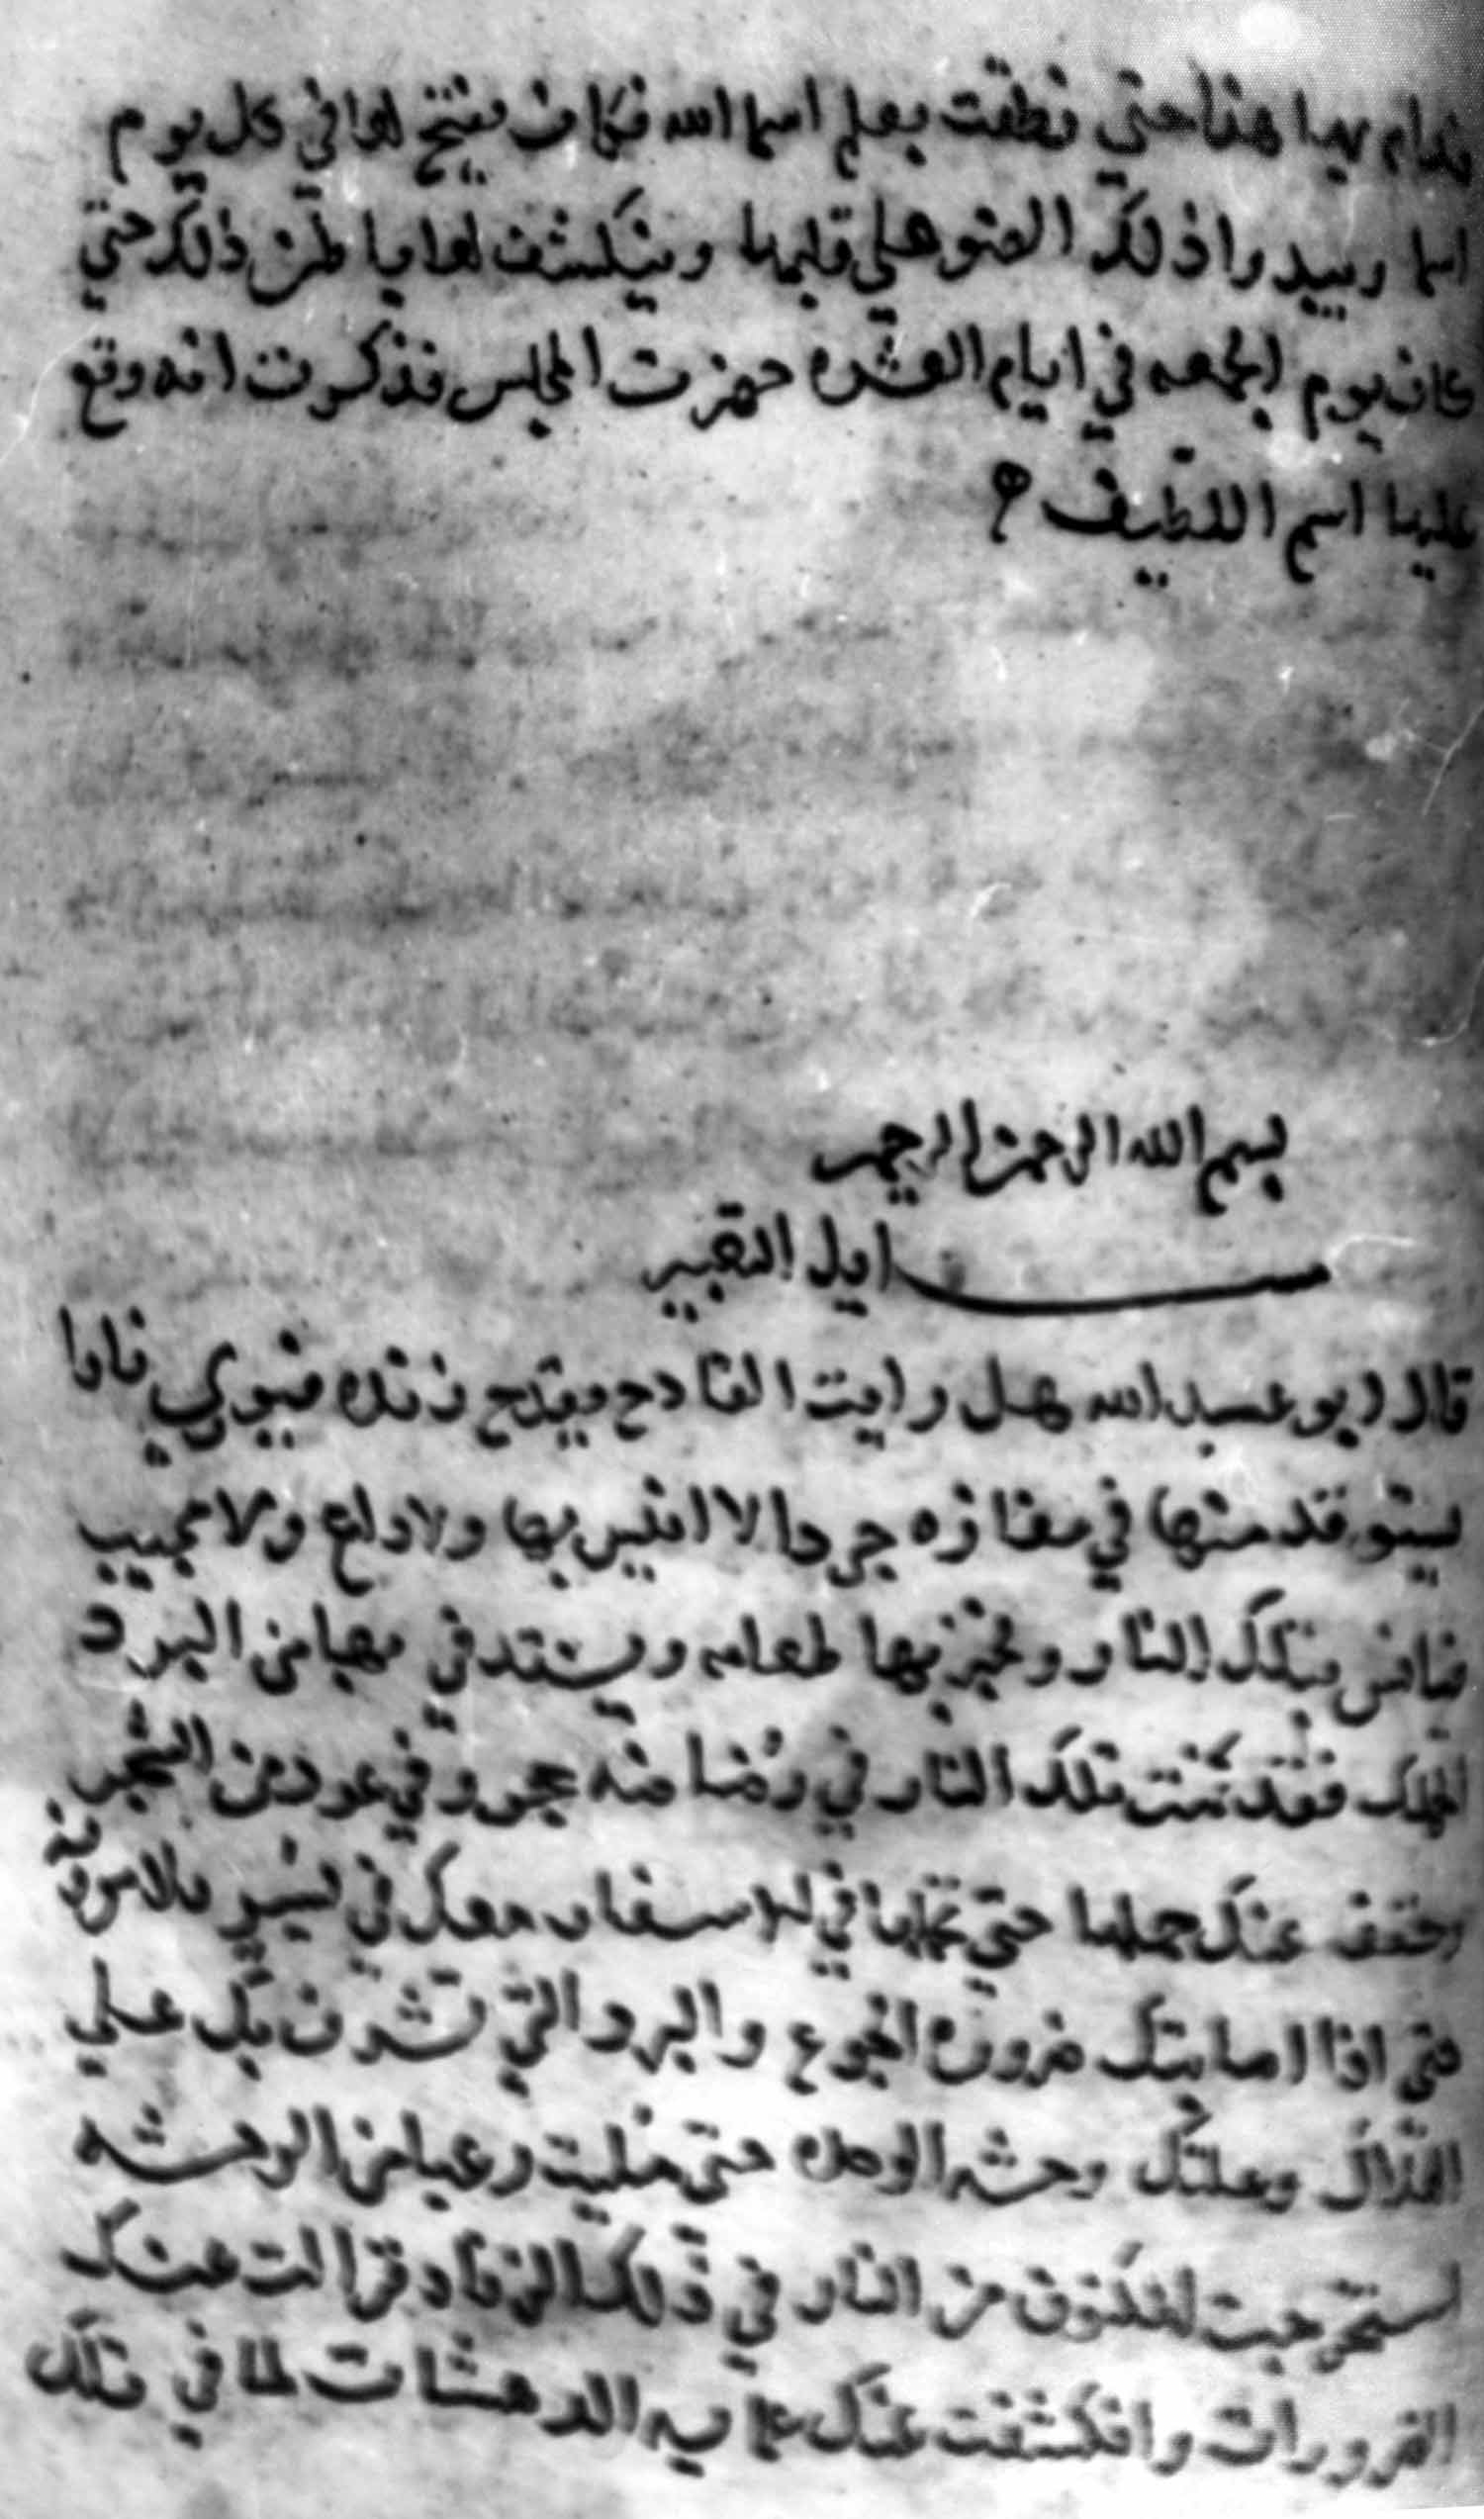 فدام بها هذا حتى نطقت بعلم اسما الله فكان يفتح لها في كل يوم
اسما ويبدوا ذلك الضو على قلبها وينكشف لها باطن ذلك حتى
كان يوم الجمعه في ايام العشره حضرت المجلس فذكرت انه وقع
عليها اسم اللطيف
بسم الله الرحمن الرحيم
مسايل التعبير
قال ابو عبد الله هل رايت القادح يقدح زنده فيوري نارا
يستوقد منها في مفازه جردا لا انيس بها ولا داع ولا مجيب
فيانس بتلك النار ويخبز بها طعامه ويستدفي بها من البرد
المهلك فقد كمنت تلك النار في حجر وفي عود من الشجر
وخفف عنك حملها حتى تحملها في الاسفار معك في يسير بلا مؤونة
حتى اذا اصابتك ضرورة الجوع والبرد التي تشرف بك على
التلاف وعلتك وحشه الوحده حتى مليت رعبا من الوحشه
استخرجت المكنون من النار في ذلك الزناد فزالت عنك
الضرورات وانكشفت عنك الدهشات لما في تلك